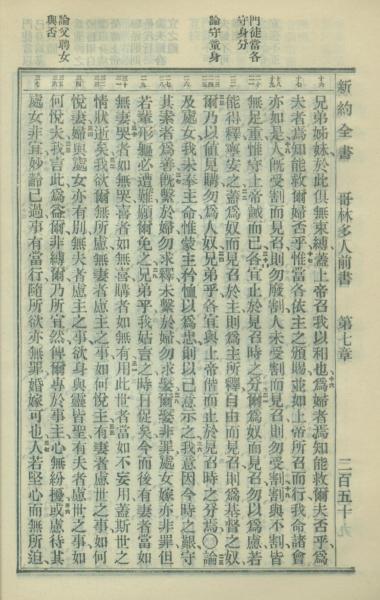 新約全書　哥林多人前書　第七章　二百五十九
門徒當各守身分
論守童身
論父聘女與否
兄弟姊妹於此俱無束縛蓋上帝召我以和也爲婦者焉知能救爾夫否乎爲
夫者焉知能救爾婦否乎惟當各依主之頒賜並如上帝所召而行我命諸會
亦如是人旣受割而見召則勿廢割人未受割而見召則勿受割割與不割皆
無足重惟守上帝誡而已各宜止於見召時之分爾爲奴而見召勿以爲慮若
能得釋寧安之蓋爲奴而見召於主則爲主所釋自由而見召則爲基督之奴
爾乃以値見購勿爲人奴兄弟乎各宜與上帝偕而止於見召時之分焉〇論
及處女我未奉主命惟蒙主矜恤以爲忠則以己意示之我意因今時之艱守
其素者爲善旣繫於婦勿求釋未繫於婦勿求娶爾娶非罪處女嫁亦非罪但
若輩形軀必遭難願爾免之兄弟乎我姑言之時日促矣今而後有妻者當如
無妻哭者如無哭喜者如無喜購者如無有用此世者當如不妄用蓋斯世之
情狀逝矣我欲爾無所慮無妻者慮主之事如何悅主有妻者慮世之事如何
悅妻婦與處女亦有別無夫者慮主之事欲身與靈皆聖有夫者慮世之事如
何悅夫我言此爲益爾非縛爾乃所宜然俾爾專於事主心無紛擾或慮待其
處女非宜妙齡已過事有當行隨所欲亦無罪婚嫁可也人若堅心而無所迫